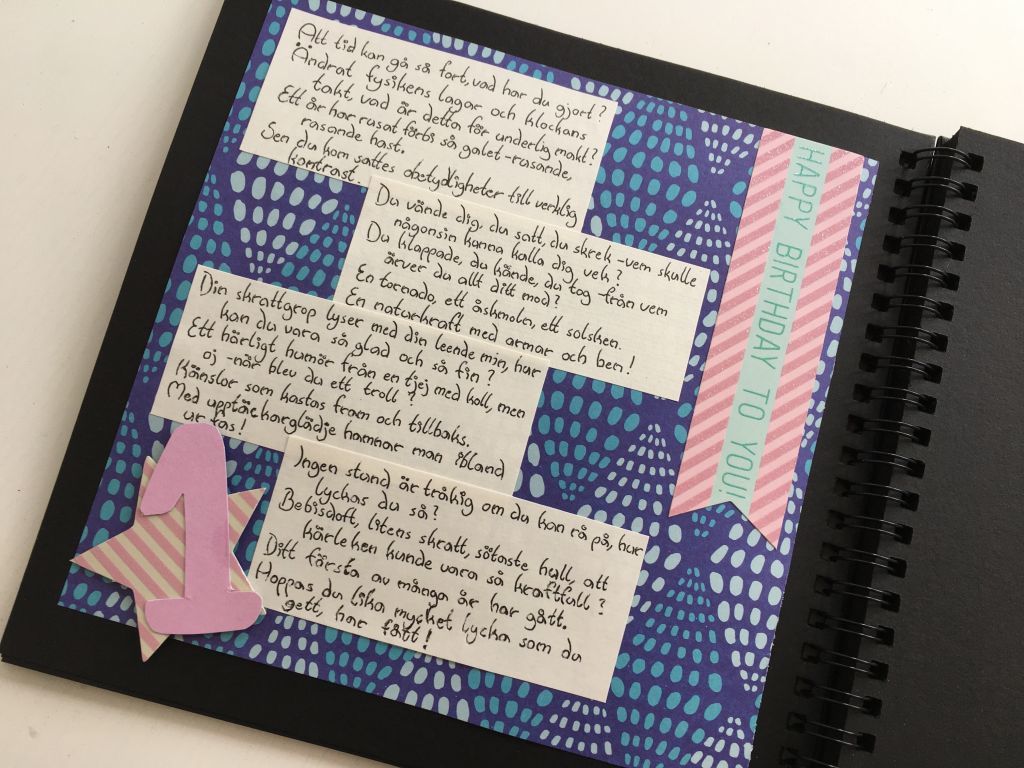 Att tid kan gå så fort, vad har du gjort?
Ändrat fysikens lagar och klockans
takt, vad är detta för underlig makt?
Ett år har rusat förbi så galet-rasande,
rasande hast.
Sen du kom sattes obetydligheter till verklig
kontrast.
Du vände dig, du satt, du skrek -vem skulle
någonsin kunna kalla dig vek?
Du klappade, du kände, du tog -från vem
ärver du allt ditt mod?
En tornado, ett åskmoln, ett solsken.
En naturkraft med armar och ben!
Din skrattgrop lyser med din leende min, hur
kan du vara så glad och så fin?
Ett härligt humör från en tjej med koll, men
oj -när blev du ett troll?
Känslor som kastas fram och tillbaks.
Med upptäckarglädje hamnar man ibland
ur fas!
Ingen stund är tråkig om du kan rå på, hur
lyckas du så?
Bebisdoft, litens skratt, sötaste hull, att
kärleken kunde vara så kraftfull?
Ditt första av många år har gått.
Hoppas du lika mycket lycka som du
gett, har fått!
1
HAPPY BIRTHDAY TO YOU!